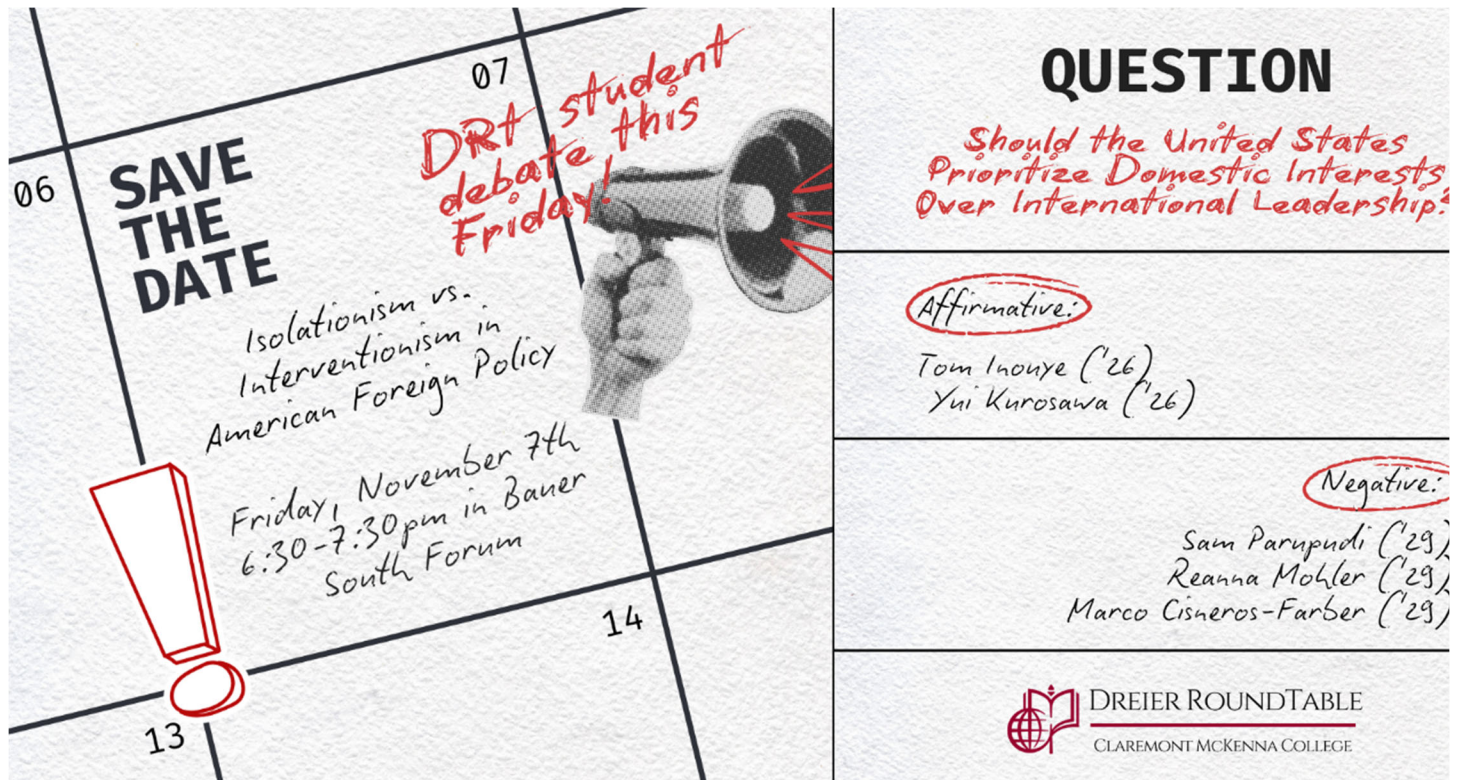 06
07
SAVE
THE
DATE
DRt student
debate this
Friday!
Isolationism vs.
Interventionism in
American Foreign Policy
Friday, November 7th
6:30-7:30pm in Bauer
South Forum
13
14
QUESTION
Should the United States
Prioritize Domestic Interests
Over International Leadership?
Affirmative:
Tom Inouye ('26)
Yui Kurosawa ('26)
Negative:
Sam Parupudi ('29)
Reanna Mohler ('29)
Marco Cisneros-Farber ('29)
DREIER ROUNDTABLE
CLAREMONT MCKENNA COLLEGE